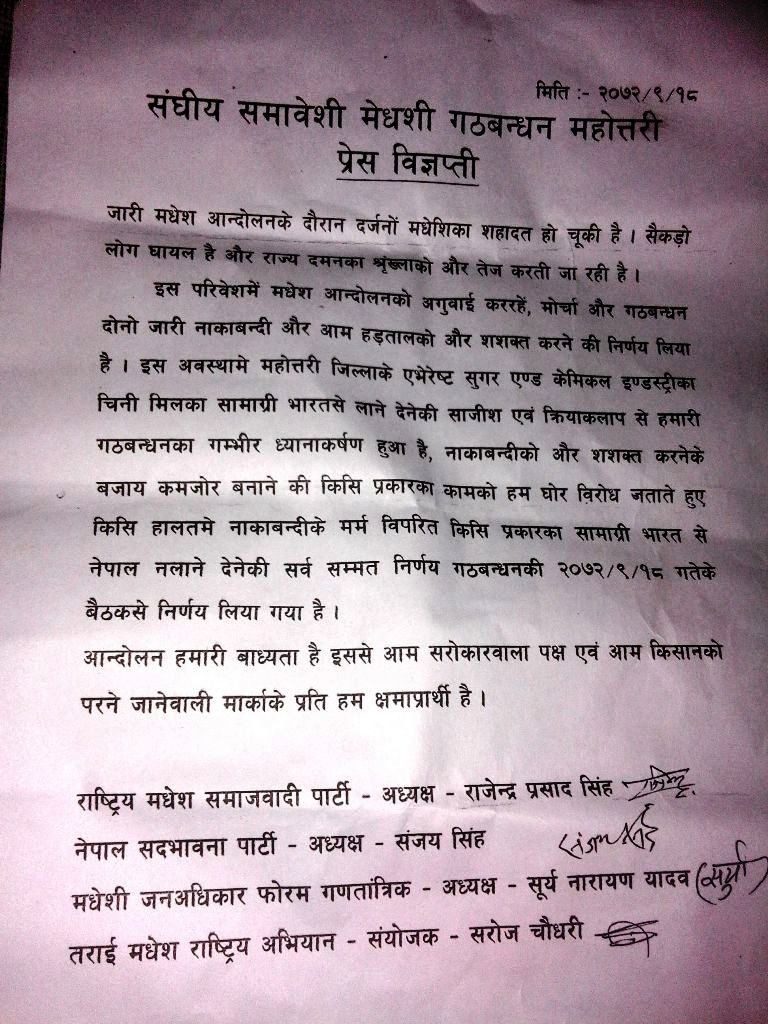 मिति :- २०७२/९/१८
संघीय समावेशी मेधशी गठबन्धन महोत्तरी
प्रेस विज्ञप्ती
जारी मधेश आन्दोलनके दौरान दर्जनों मधेशिका शहादत हो चूकी है । सैकड़ो
लोग घायल है और राज्य दमनका श्रृंख्लाको और तेज करती जा रही है ।
इस परिवेशमें मधेश आन्दोलनको अगुवाई कररहें, मोर्चा और गठबन्धन
दोनो जारी नाकाबन्दी और आम हड़तालको और शशक्त करने की निर्णय लिया
है । इस अवस्थामे महोत्तरी जिल्लाके एभेरेष्ट सुगर एण्ड केमिकल इण्डस्ट्रीका
चिनी मिलका सामाग्री भारतसे लाने देनेकी साजीश एवं क्रियाकलाप से हमारी
गठबन्धनका गम्भीर ध्यानाकर्षण हुआ है, नाकाबन्दीको और शशक्त करनेके
बजाय कमजोर बनाने की किसि प्रकारका कामको हम घोर विरोध जताते हुए
किसि हालतमे नाकाबन्दीके मर्म विपरित किसि प्रकारका सामाग्री भारत से
नेपाल नलाने देनेकी सर्व सम्मत निर्णय गठबन्धनकी २०७२/९/१८ गतेके
बैठकसे निर्णय लिया गया है ।
आन्दोलन हमारी बाध्यता है इससे आम सरोकारवाला पक्ष एवं आम किसानको
परने जानेवाली मार्काके प्रति हम क्षमाप्रार्थी है ।
राष्ट्रिय मधेश समाजवादी पार्टी - अध्यक्ष - राजेन्द्र प्रसाद सिंह
नेपाल सदभावना पार्टी - अध्यक्ष - संजय सिंह
मधेशी जनअधिकार फोरम गणतांत्रिक - अध्यक्ष - सूर्य नारायण यादव (सुर्य)
तराई मधेश राष्ट्रिय अभियान - संयोजक - सरोज चौधरी